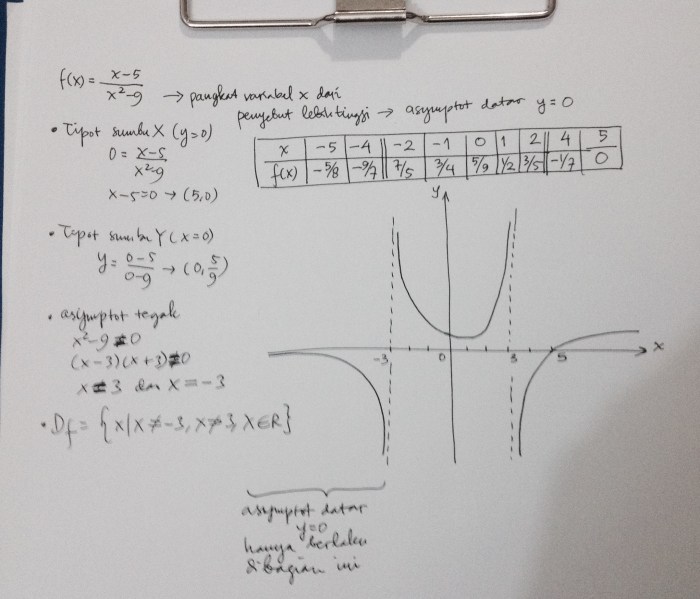 f(x) = x-5 / x²-9 → pangkat variabel x dari
penyebut lebih tinggi → asymptot datar y=0
• Tipot sumbu X (y=0)
0 = x-5 / x²-9
x-5=0 → (5,0)
x | -5 | -4 | -2 | -1 | 0 | 1 | 2 | 4 | 5
f(x) | -5/8 | -9/7 | 7/5 | 3/4 | 5/9 | 1/2 | 3/5 | -1/7 | 0
• Tipot sumbu Y (x=0)
y = 0-5 / 0-9 → (0, 5/9)
• asymptot tegak
x²-9 ≠ 0
(x-3)(x+3) ≠ 0
x = 3 dan x = -3
• Df = {x|x ≠ -3, x ≠ 3, x ∈ R}
y
-3 0 3 5 x
asymptot datar
y=0
hanya berlaku
dibagian ini